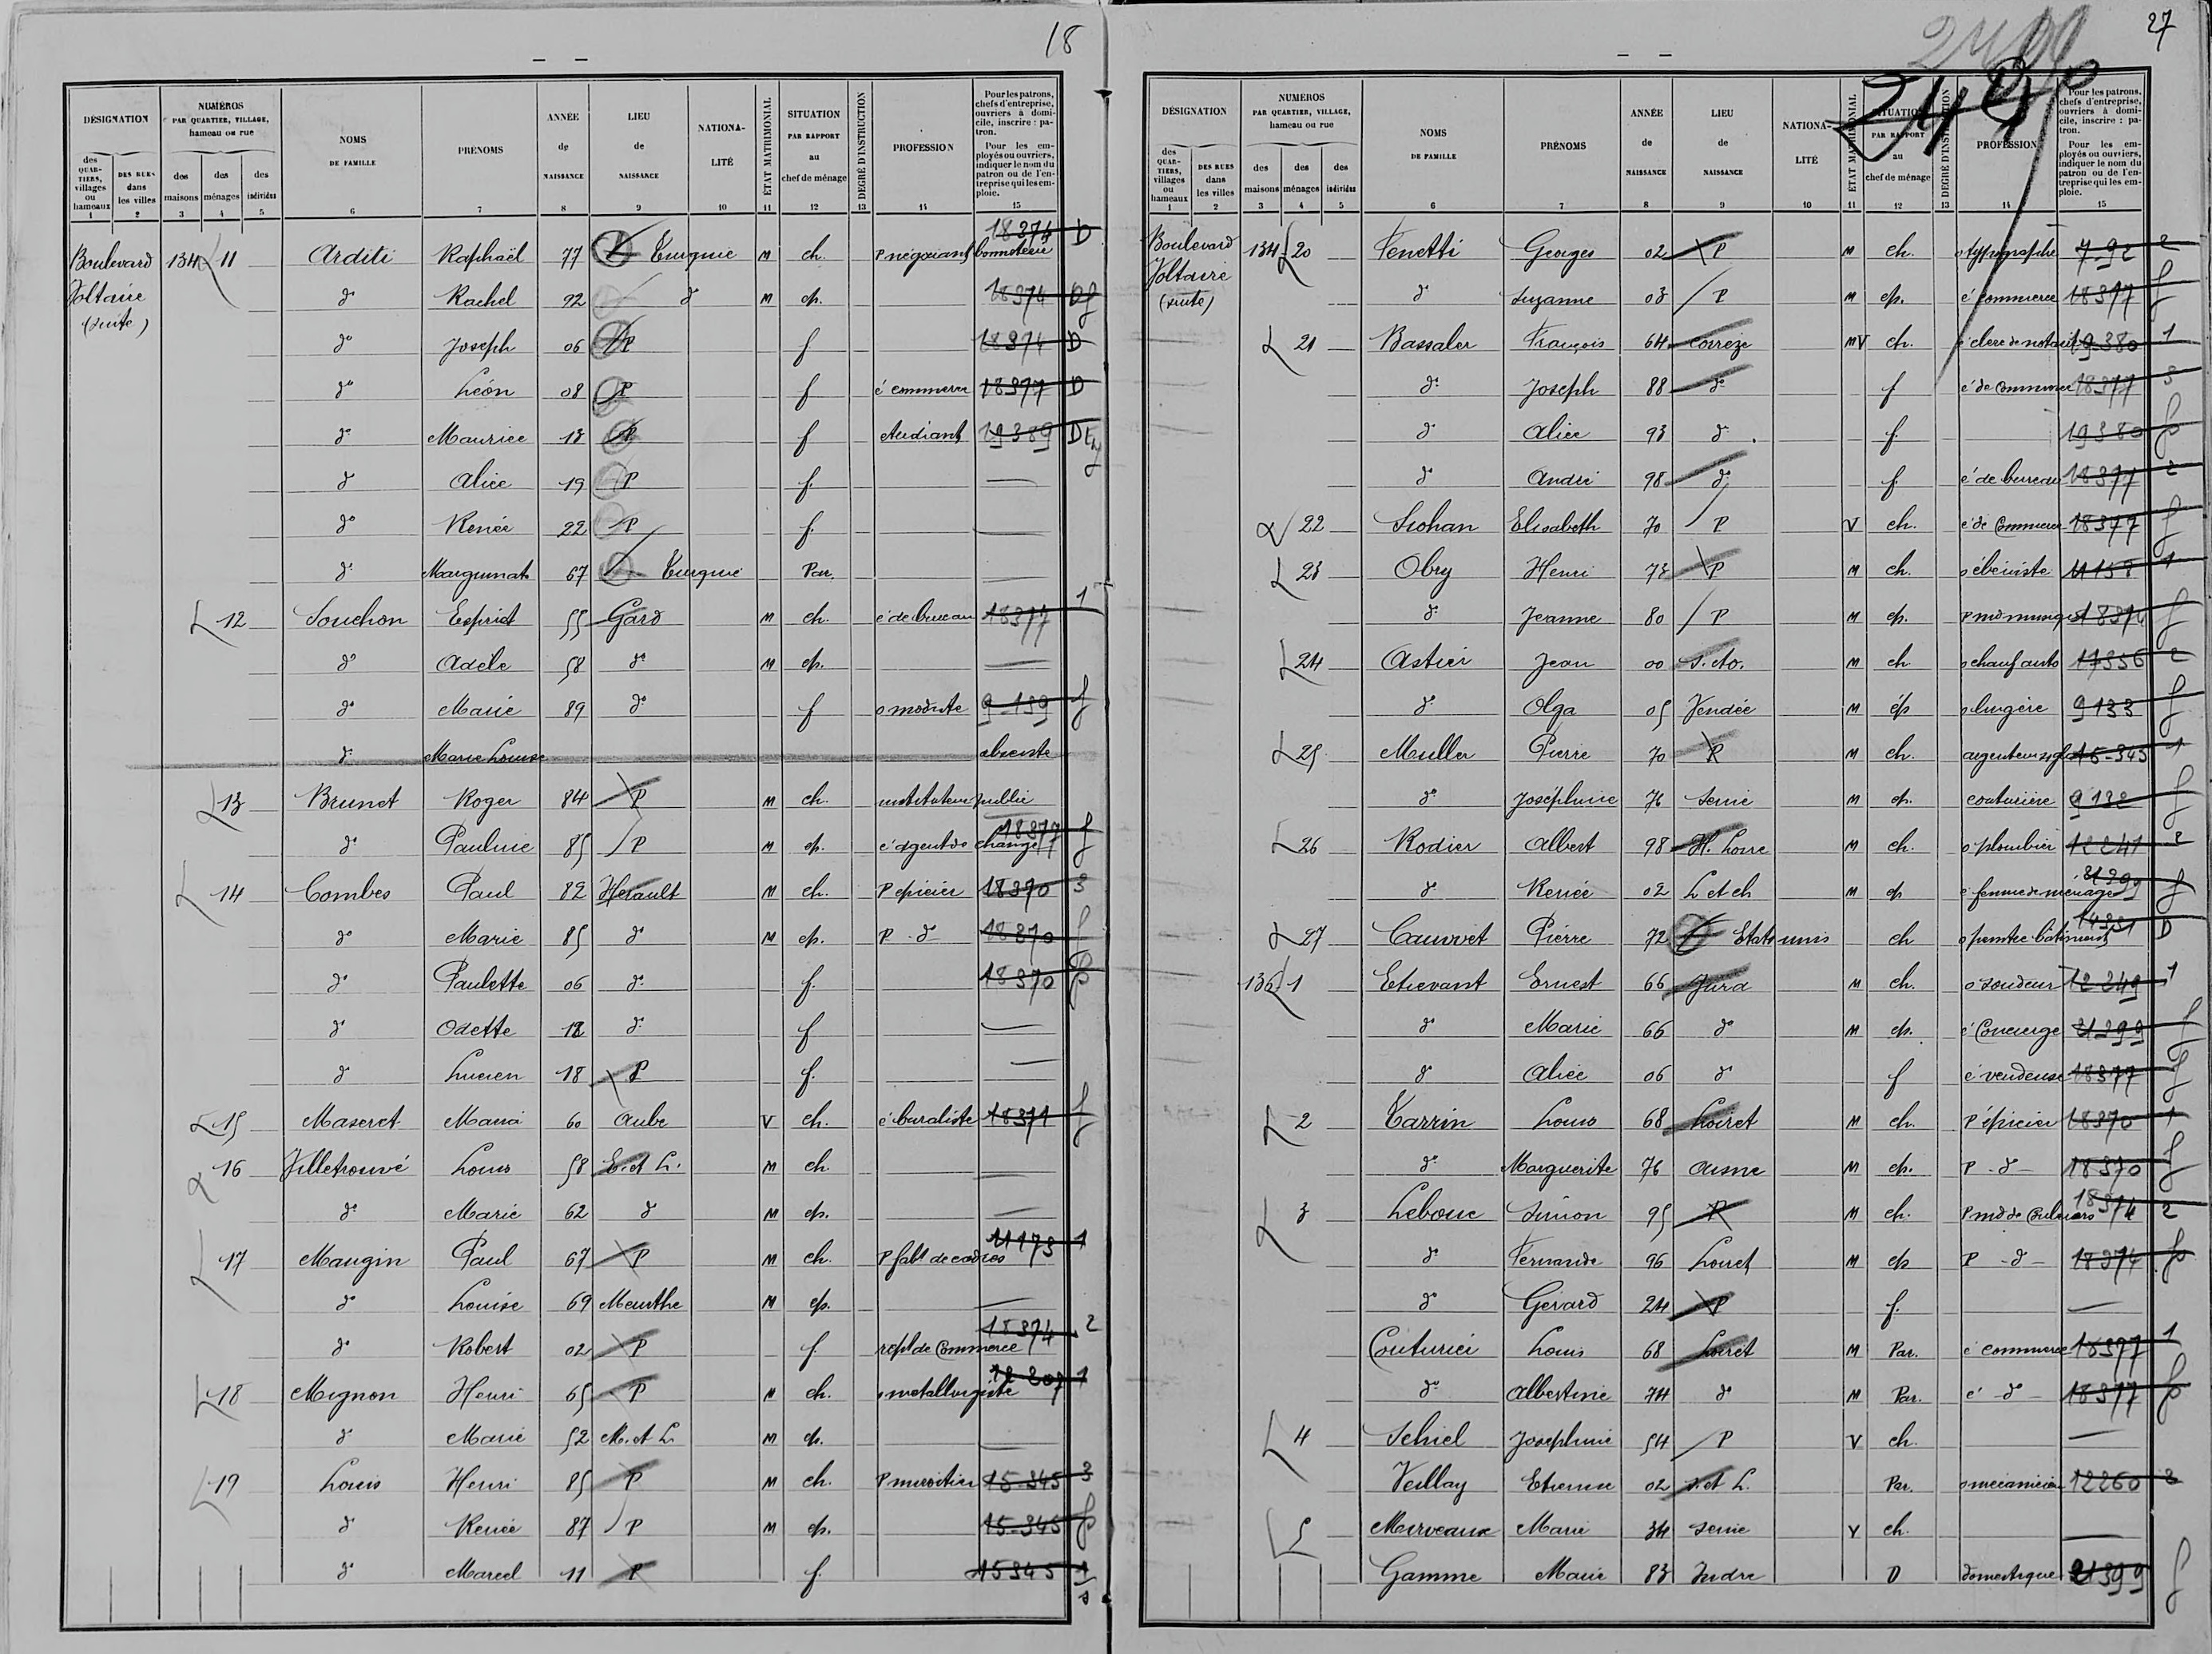 18
DÉSIGNATION
des QUARTIERS, villages ou hameaux 1
DES RUES dans les villes 2
NUMÉROS PAR QUARTIER, VILLAGE, hameau ou rue
des maisons 3
des ménages 4
des individus 5
NOMS DE FAMILLE 6
PRÉNOMS 7
ANNÉE de NAISSANCE 8
LIEU de NAISSANCE 9
NATIONALITÉ 10
ÉTAT MATRIMONIAL 11
SITUATION PAR RAPPORT au chef de ménage 12
DEGRÉ D'INSTRUCTION 13
PROFESSION 14
Pour les patrons, chefs d'entreprise, ouvriers à domicile, inscrire : patron.
Pour les employés ou ouvriers, indiquer le nom du patron ou de l'entreprise qui les emploie. 15
Boulevard Voltaire (suite)
134 11 Arditi Raphaël 77 Turquie M ch. P négociant bonneterie 18374 D
d° Rachel 92 d° M ep. 18374 Df
d° Joseph 06 P f 18374 D
d° Léon 08 P f é commerce 18377 D
d° Maurice 13 P f étudiant 19389 D
d° Alice 19 P f. —
d° Renée 22 P f. —
d° 67 Turquie Par. —
12 Souchon Esprit 55 Gard M ch. é de bureau 18377 1
d° Adèle 58 d° M ep. —
d° Marie 89 d° f o modiste 9-139 f
d° Marie Louise absente
13 Brunet Roger 84 P M ch. instituteur public
d° Pauline 85 P M ep. é agent de change 18377 f
14 Combes Paul 82 Herault M ch. P epicier 18370 3
d° Marie 85 d° M ep. P d° 18370 f
d° Paulette 06 d° f. 18370
d° Odette 12 d° f —
d° Lucien 18 P f. —
15 Maseret Maria 60 Aube V ch. é buraliste 18371 f
16 Villetrouvé Louis 58 E. et L. M ch —
d° Marie 62 d° M ep. —
17 Maugin Paul 67 P M ch. P fabt de cadres 11173 1
d° Louise 69 Meurthe M ep. —
d° Robert 02 P f. rept de Commerce 18374 2
18 Mignon Henri 65 P M ch. o metallurgiste 12 207 1
d° Marie 52 M. et L. M ep. —
19 Louis Henri 85 P M ch. P miroitier 15-345 3
d° Renée 87 P M ep. 15-345
d° Marcel 11 P f. 15345 1
27
DÉSIGNATION
des QUARTIERS, villages ou hameaux 1
DES RUES dans les villes 2
NUMÉROS PAR QUARTIER, VILLAGE, hameau ou rue
des maisons 3
des ménages 4
des individus 5
NOMS DE FAMILLE 6
PRÉNOMS 7
ANNÉE de NAISSANCE 8
LIEU de NAISSANCE 9
NATIONALITÉ 10
ÉTAT MATRIMONIAL 11
SITUATION PAR RAPPORT au chef de ménage 12
DEGRÉ D'INSTRUCTION 13
PROFESSION 14
Pour les patrons, chefs d'entreprise, ouvriers à domicile, inscrire : patron.
Pour les employés ou ouvriers, indiquer le nom du patron ou de l'entreprise qui les emploie. 15
Boulevard Voltaire (suite)
134 20 Fenetti Georges 02 P M ch. o typographe 7-92 2
d° Suzanne 03 P M ep. é commerce 18377 f
21 Bassaler François 64 Corrèze MV ch. é clerc de notaire 19380 1
d° Joseph 88 d° f é de Commerce 18377 3
d° Alice 93 d° f. 19380
d° André 98 d° f é de bureau 18377 2
22 Elisabeth 70 P V ch. é de Commerce 18377 f
23 Obry Henri 73 P M ch. o ébéniste 1
d° Jeanne 80 P M ep. 18374 f
24 Astier Jean 00 M ch o chauf auto 17356 2
d° Olga 05 Vendée M ép o lingère 9133 f
25 Muller Pierre 70 P M ch. 15-345 1
d° Joséphine 76 Seine M ep. couturière 9132 f
26 Rodier Albert 98 H. Loire M ch. o plombier 12241 2
d° Renée 02 L et ch M ep é femme de ménage 21399 f
27 Cauvet Pierre 72 Etats unis ch o peintre bâtiment 14331 D
136 1 Etievant Ernest 66 Jura M ch. o soudeur 12249 1
d° Marie 66 d° M ep. é Concierge 21399 f
d° Alice 06 d° f é vendeuse 18377 f
2 Tarrin Louis 68 Loiret M ch. P épicier 18370 1
d° Marguerite 76 Aisne M ep. P - d° - 18370 f
3 Lebouc Simon 95 P M ch. P md de Couleurs 18374 2
d° Fernande 96 Loiret M ep P - d° - 18374
d° Gérard 24 P f. —
Couturier Louis 68 Loiret M Par. é commerce 18377 1
d° Albertine 74 d° M Par. é - d° - 18377
4 Schiel Josephine 54 P V ch. —
Veillay Etienne 02 S. et L. Par. o mécanicien 12260 2
5 Merveaux Marie 34 Seine V ch. —
Gamme Marie 83 Indre D domestique 21399 f